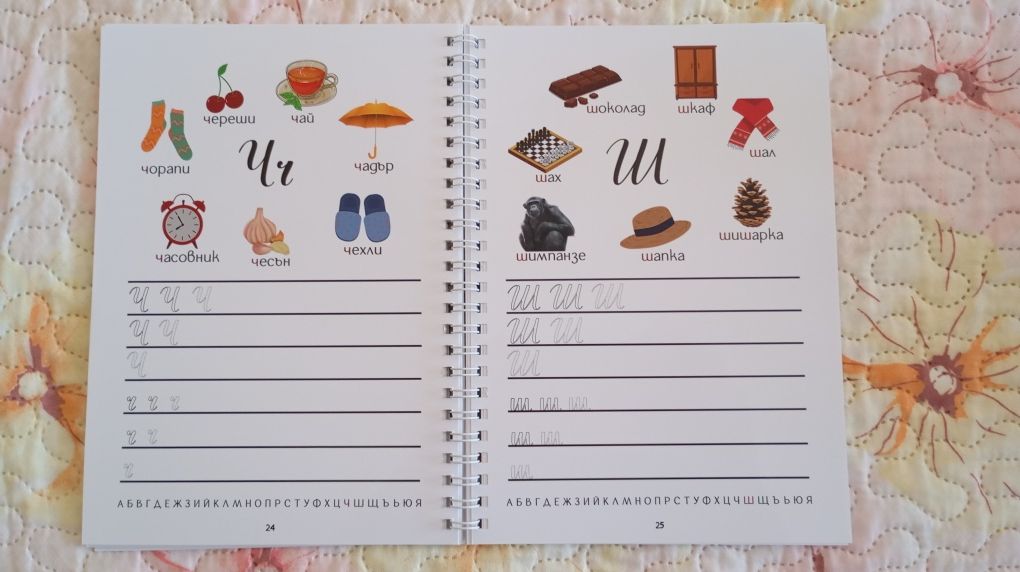 череши
чай
чорапи
Чч
чадър
часовник
чесън
чехли
Ч Ч Ч
Ч Ч
Ч
ч ч ч
ч ч
ч
АБВГДЕЖЗИЙКЛМНОПРСТУФХЦЧШЩЪЬЮЯ
24
шоколад
шкаф
шах
Ш
шал
шимпанзе
шапка
шишарка
Ш Ш Ш
Ш Ш
Ш
ш ш ш
ш ш
ш
АБВГДЕЖЗИЙКЛМНОПРСТУФХЦЧШЩЪЬЮЯ
25